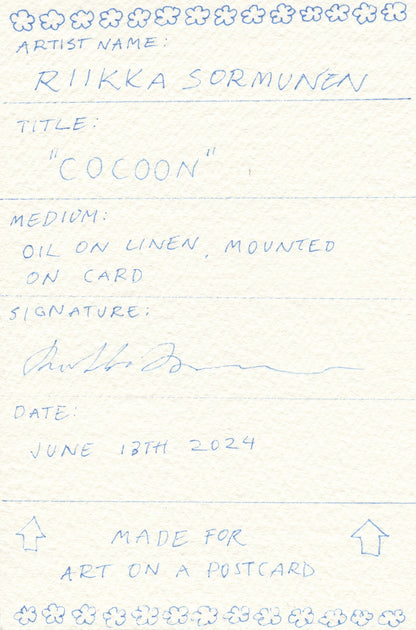 ARTIST NAME:
RIIKKA SORMUNEN
TITLE:
"COCOON"
MEDIUM:
OIL ON LINEN, MOUNTED
ON CARD
SIGNATURE:
DATE:
JUNE 13TH 2024
MADE FOR
ART ON A POSTCARD